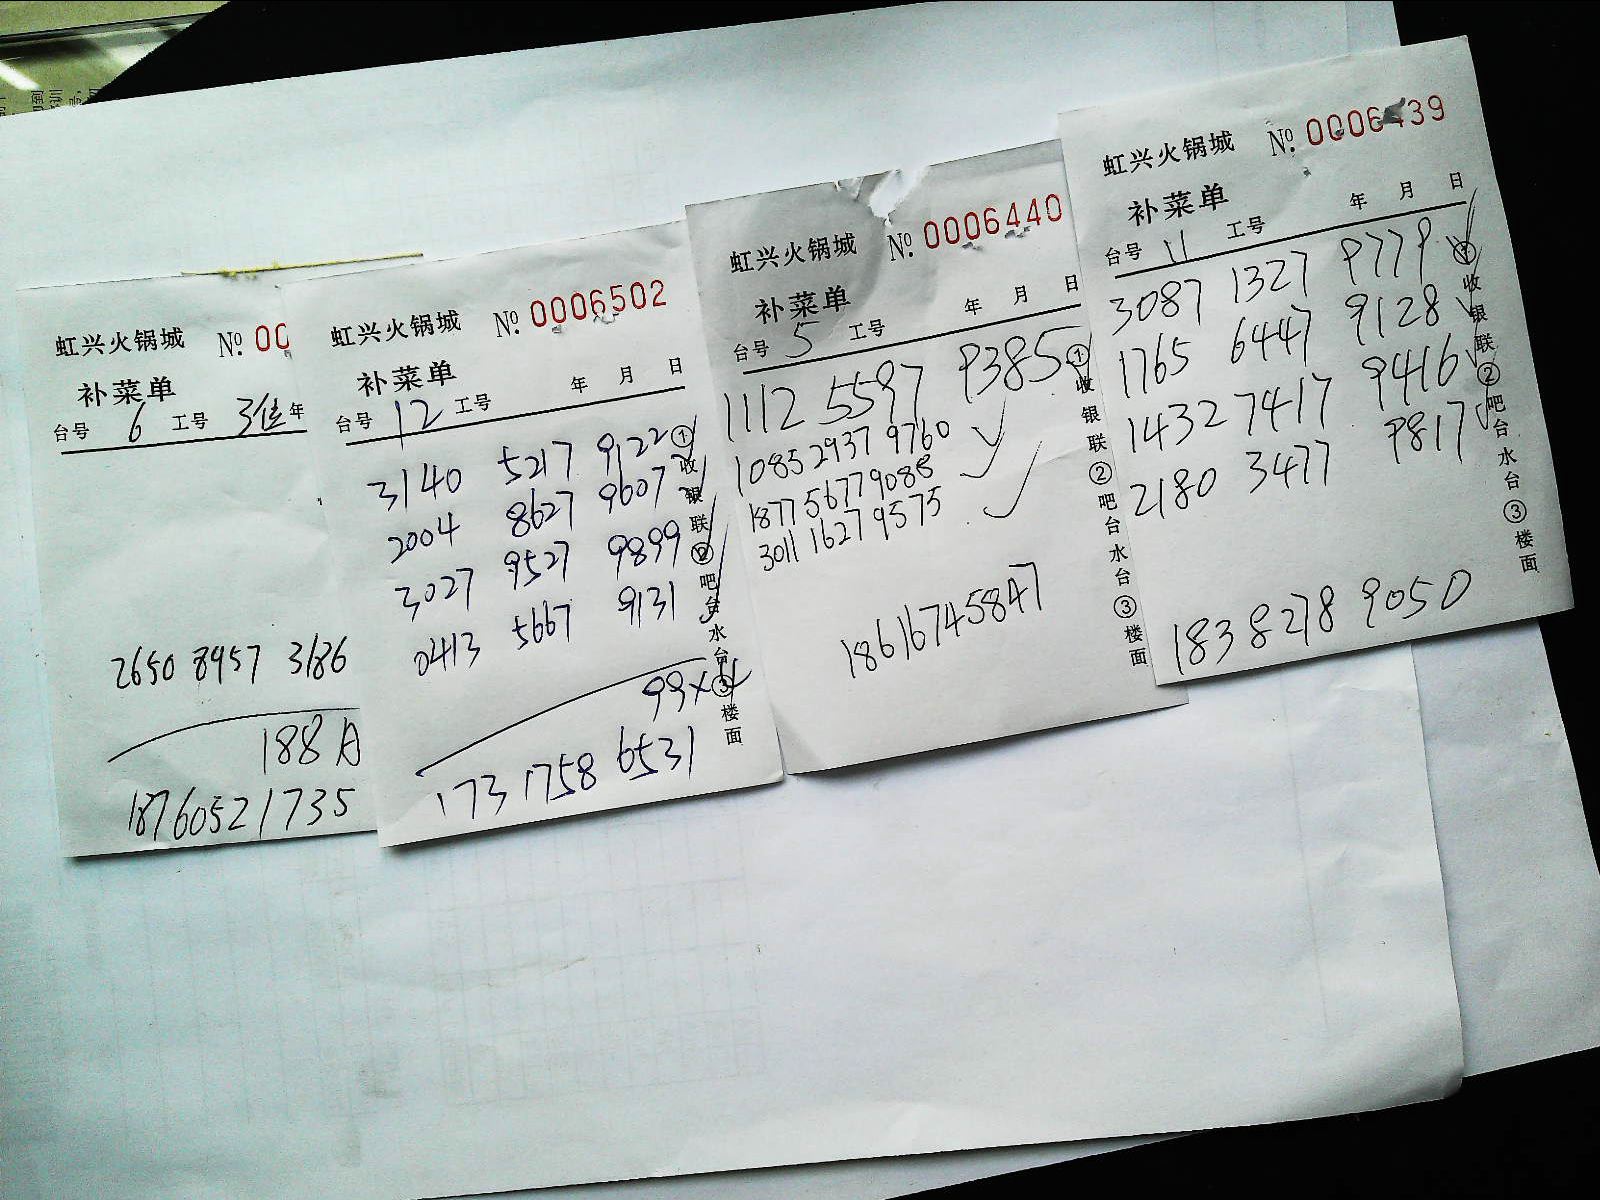 虹兴火锅城 №. 00
补菜单
台号 6 工号 3位 年
2650 8957 3186
188A
18760521735
虹兴火锅城 №. 0006502
补菜单 年 月 日
台号 12 工号
3140 5217 9122
2004 8627 9607
3027 9527 9899
0413 5667 9131
99×4
173 1758 6531
①收银联②吧台水台③楼面
虹兴火锅城 №. 0006440
补菜单 年 月 日
台号 5 工号
1112 5597 9385
1085 2937 9760
1877 5677 9088
3011 1627 9575
18616745847
①收银联②吧台水台③楼面
虹兴火锅城 №. 0006439
补菜单 年 月 日
台号 11 工号
3087 1327 9779
1765 6447 9128
1432 7417 9416
2180 3477 9817
183 8278 9050
①收银联②吧台水台③楼面